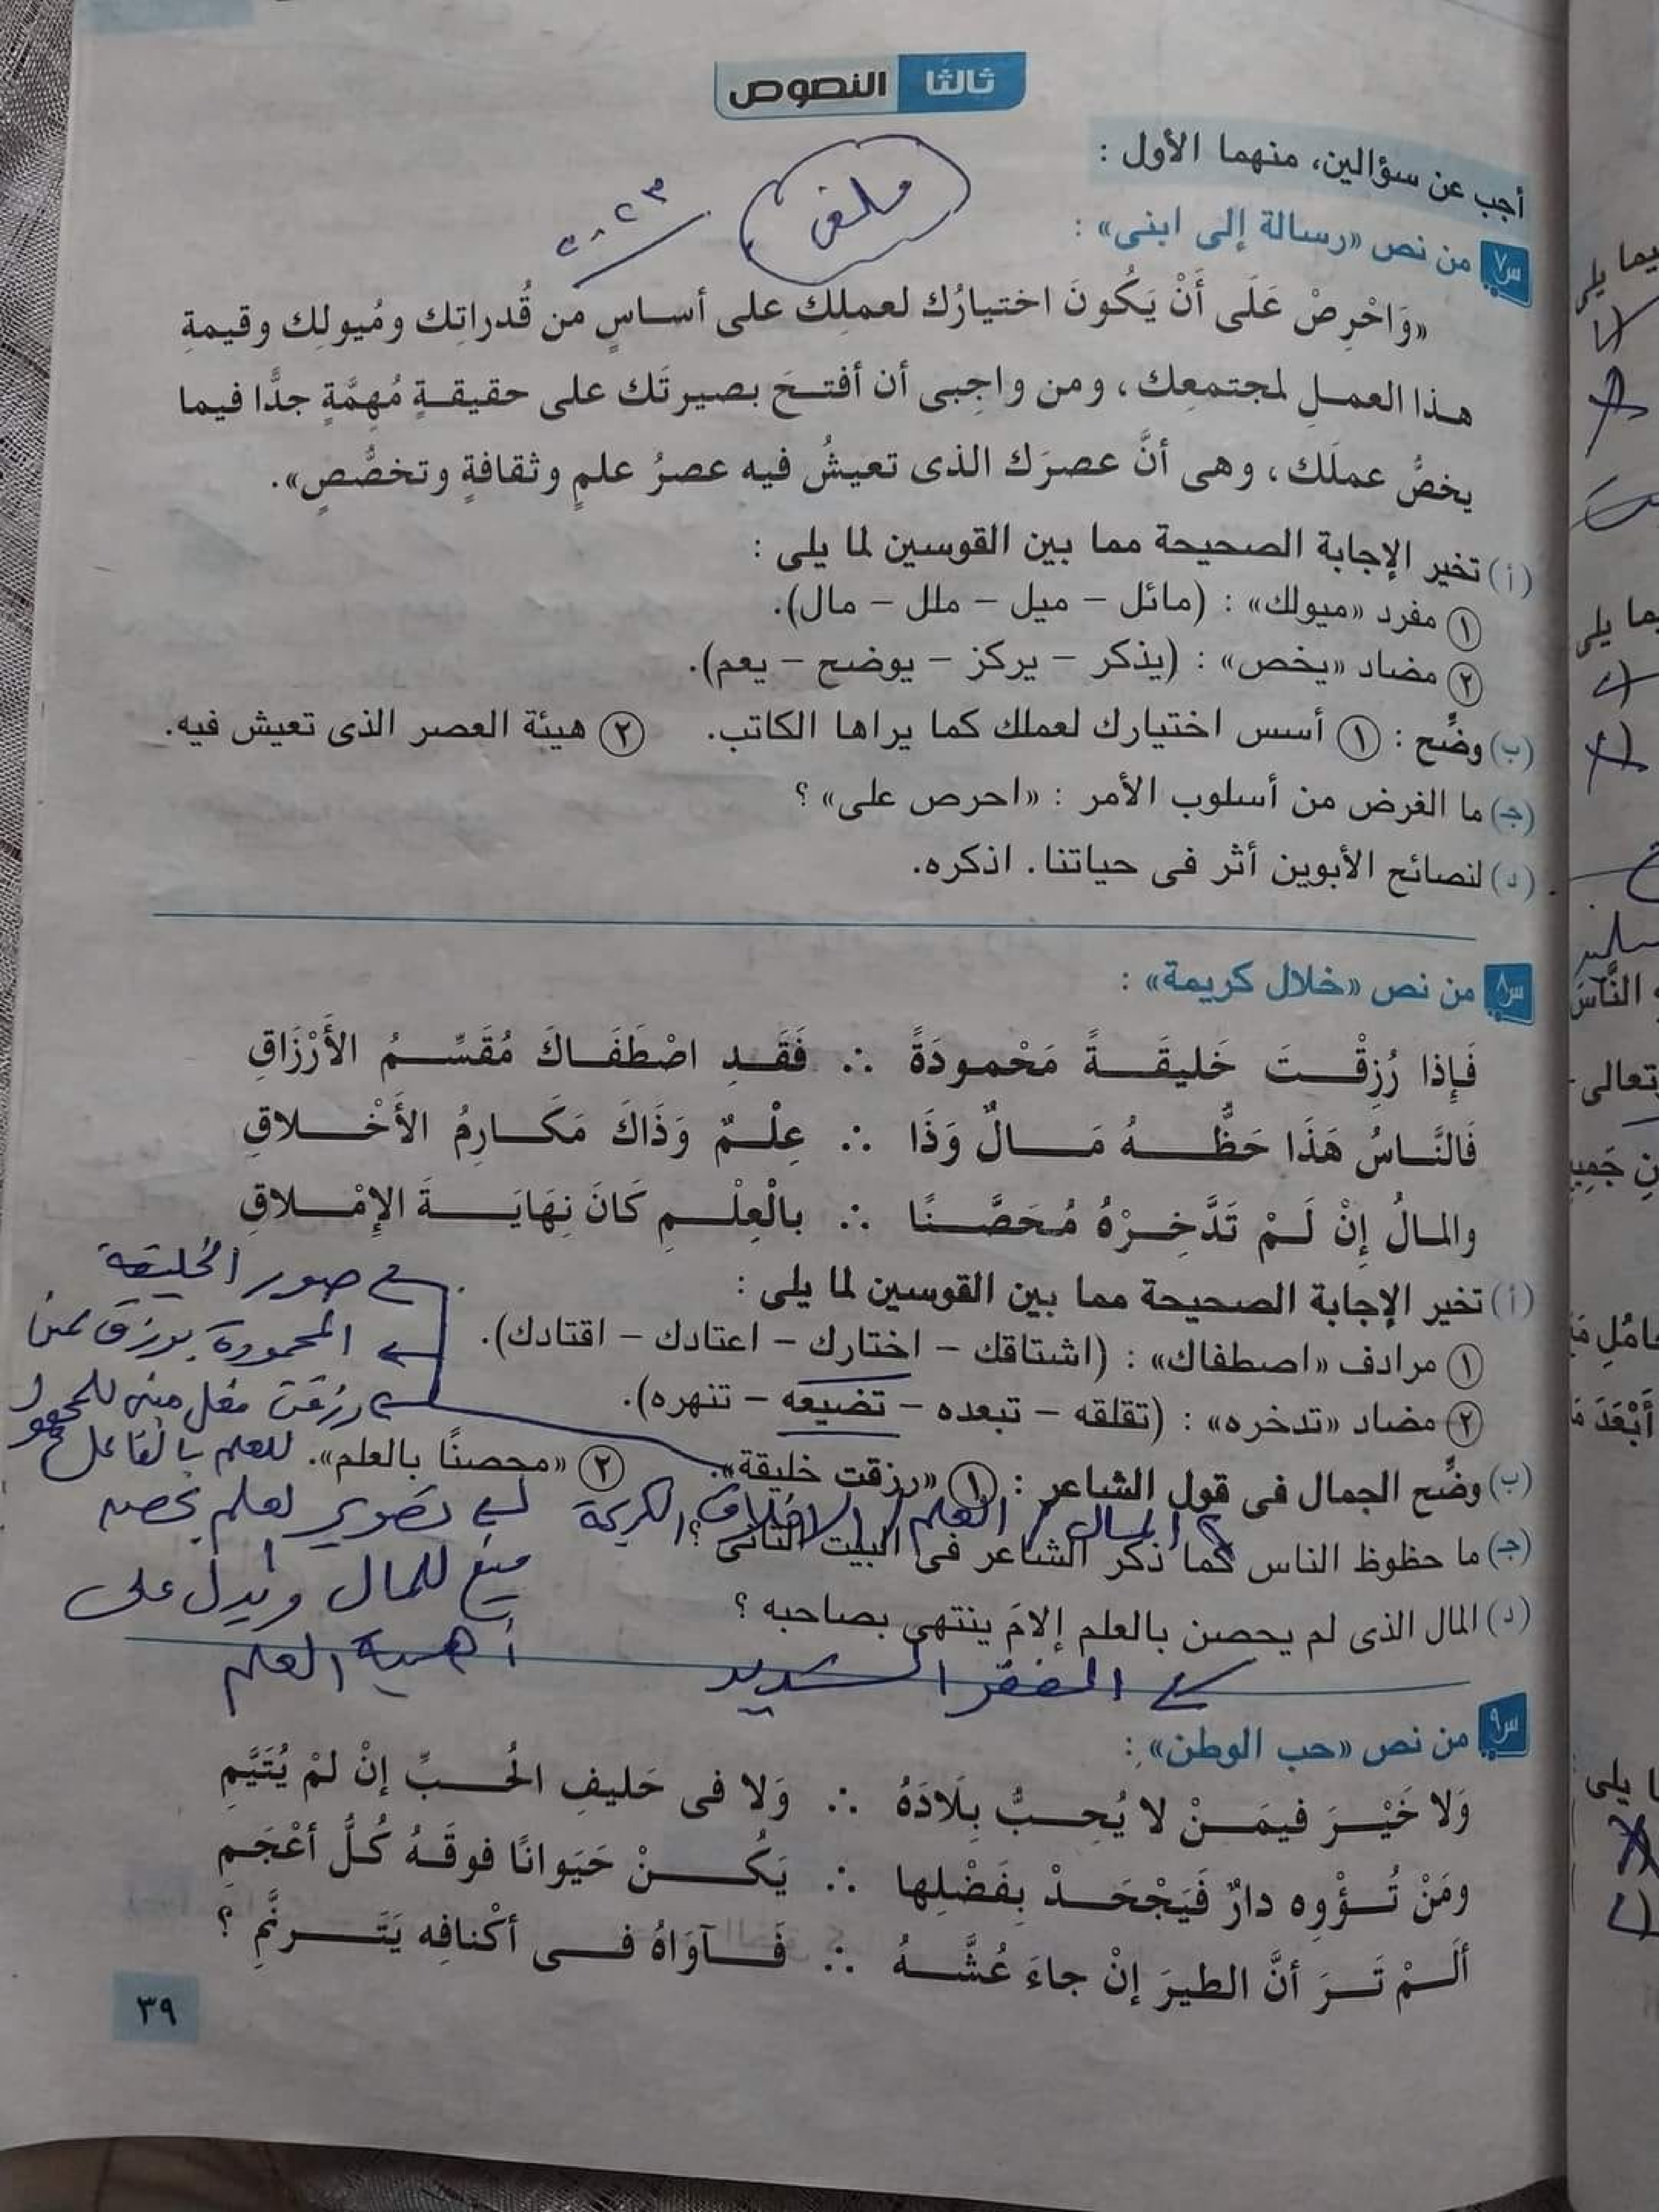 ثالثا النصوص
أجب عن سؤالين، منهما الأول :
ملغى
٢٠٢٣
س٧ من نص «رسالة إلى ابنى» :
«وَاحْرِصْ عَلَى أَنْ يَكُونَ اختيارُك لعملِك على أساسٍ من قُدراتِك ومُيولِك وقيمةِ
هذا العملِ لمجتمعِك، ومن واجِبى أن أفتحَ بصيرتَك على حقيقةٍ مُهِمَّةٍ جدًّا فيما
يخصُّ عملَك، وهى أنَّ عصرَك الذى تعيشُ فيه عصرُ علمٍ وثقافةٍ وتخصُّصٍ».
(أ) تخير الإجابة الصحيحة مما بين القوسين لما يلى :
١ مفرد «ميولك» : (مائل – ميل – ملل – مال).
٢ مضاد «يخص» : (يذكر – يركز – يوضح – يعم).
(ب) وضِّح : ١ أسس اختيارك لعملك كما يراها الكاتب. ٢ هيئة العصر الذى تعيش فيه.
(جـ) ما الغرض من أسلوب الأمر : «احرص على» ؟
(د) لنصائح الأبوين أثر فى حياتنا. اذكره.
س٨ من نص «خلال كريمة» :
فَإِذا رُزِقْتَ خَليقَةً مَحْمودَةً ∴ فَقَدِ اصْطَفَاكَ مُقَسِّمُ الأَرْزَاقِ
فَالنَّاسُ هَذَا حَظُّهُ مَالٌ وَذَا ∴ عِلْمٌ وَذَاكَ مَكَارِمُ الأَخْلاقِ
والمالُ إِنْ لَمْ تَدَّخِرْهُ مُحَصَّنًا ∴ بالْعِلْمِ كَانَ نِهَايَةَ الإِمْلاقِ
(أ) تخير الإجابة الصحيحة مما بين القوسين لما يلى :
صور الخليقة
١ مرادف «اصطفاك» : (اشتاقك – اختارك – اعتادك – اقتادك).
المحمودة برزق
٢ مضاد «تدخره» : (تقلقه – تبعده – تضيعه – تنهره).
رزقت فعل مبنى للمجهول
(ب) وضِّح الجمال فى قول الشاعر : ١ «رزقت خليقة». ٢ «محصنًا بالعلم».
للعلم بالفاعل
المال / العلم / الاخلاق الكريمة
تصوير لعلم بحصن
(جـ) ما حظوظ الناس كما ذكر الشاعر فى البيت الثانى ؟
للمال ويدل على
(د) المال الذى لم يحصن بالعلم إلامَ ينتهى بصاحبه ؟
أهمية العلم
الفقر الشديد
س٩ من نص «حب الوطن» :
وَلا خَيْرَ فيمَنْ لا يُحِبُّ بِلَادَهُ ∴ وَلا فى حَليفِ الحُبِّ إنْ لمْ يُتَيَّمِ
ومَنْ تُؤْوِه دارٌ فَيَجْحَدْ بِفَضْلِها ∴ يَكُنْ حَيَوانًا فوقَهُ كُلُّ أعْجَمِ
ألَمْ تَرَ أنَّ الطيرَ إنْ جاءَ عُشَّهُ ∴ فَآوَاهُ فى أكْنافِه يَتَرنَّمِ ؟
٣٩